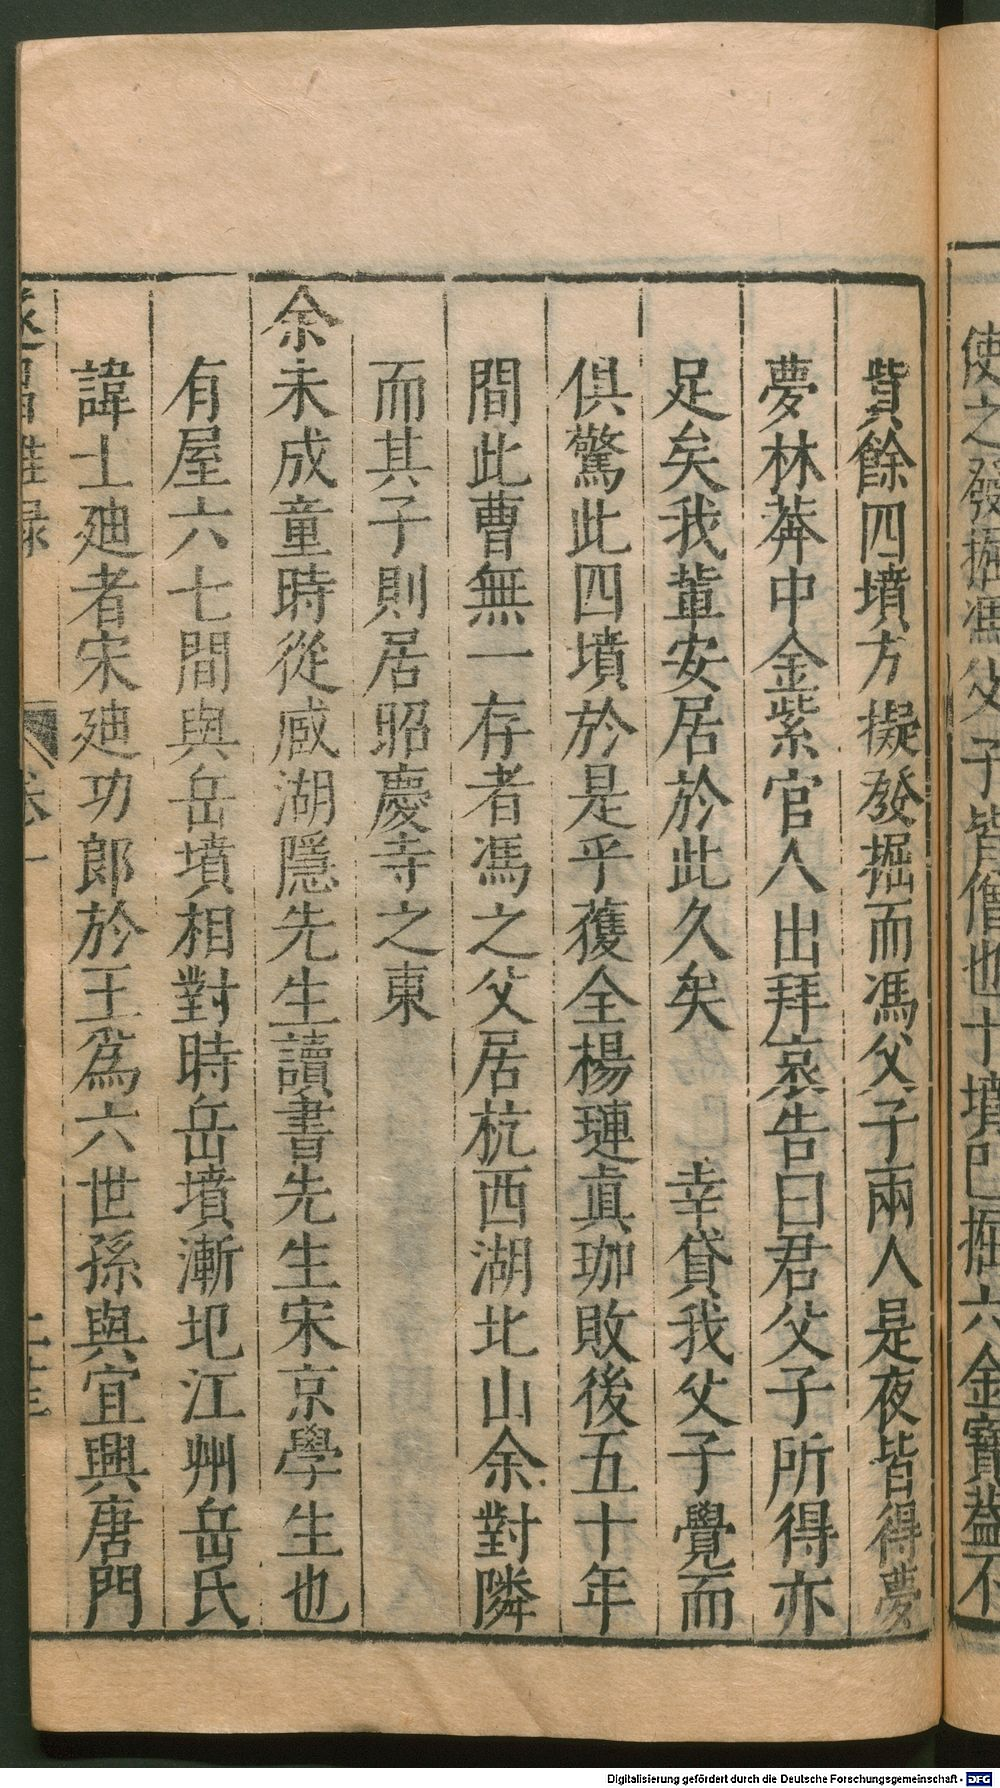 使之發掘馮父子皆僧也十墳已掘六金寶蓋不
貲餘四墳方擬發掘而馮父子兩人是夜皆得夢
夢林莽中金紫官人出拜哀告曰君父子所得亦
足矣我輩安居於此久矣 幸貸我父子覺而
俱驚此四墳於是乎獲全楊璉眞珈敗後五十年
間此曹無一存者馮之父居杭西湖北山余對隣
而其子則居昭慶寺之東
余未成童時從臧湖隱先生讀書先生宋京學生也
有屋六七間與岳墳相對時岳墳漸圯江州岳氏
諱士廸者宋廸功郎於王爲六世孫與宜興唐門
遂昌雜録 卷一
Digitalisierung gefördert durch die Deutsche Forschungsgemeinschaft - DFG